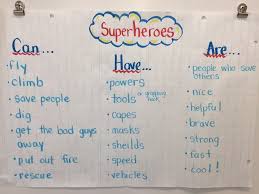 Superheroes
Can...
fly
climb
save people
dig
get the bad guys
away
put out fire
rescue
Have...
powers
tools or grappling hook
capes
masks
sheilds
speed
vehicles
Are...
people who save
others
nice
helpful
brave
strong
fast
cool!